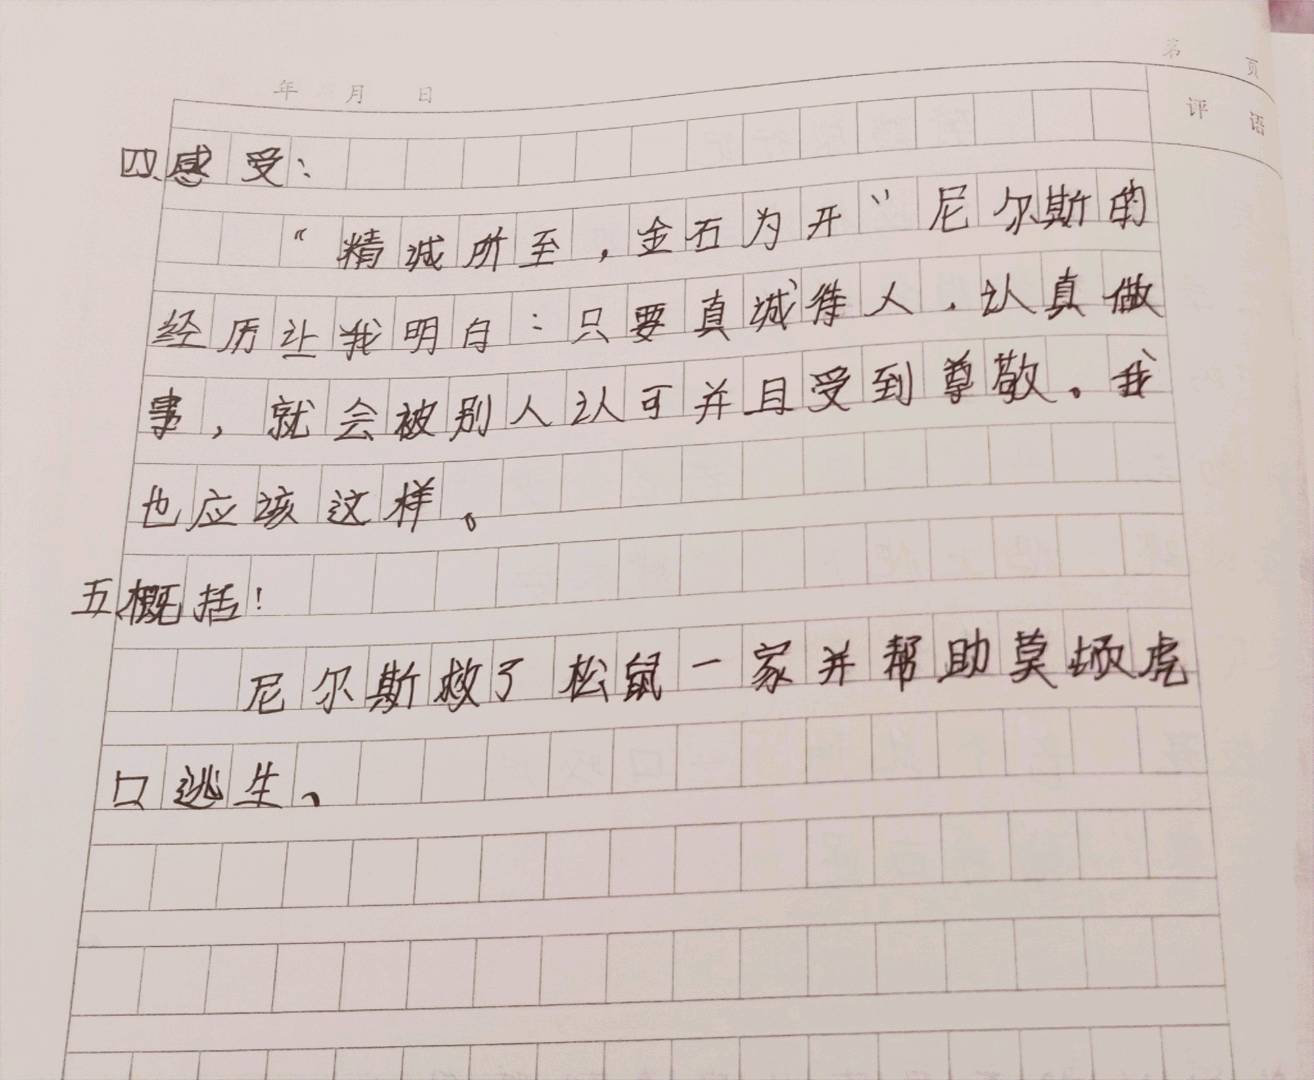 第 页
年 月 日
评 语
四、感受：
“精诚所至，金石为开”尼尔斯的
经历让我明白：只要真诚待人，认真做
事，就会被别人认可并且受到尊敬。我
也应该这样。
五、概括：
尼尔斯救了松鼠一家并帮助莫顿虎
口逃生、